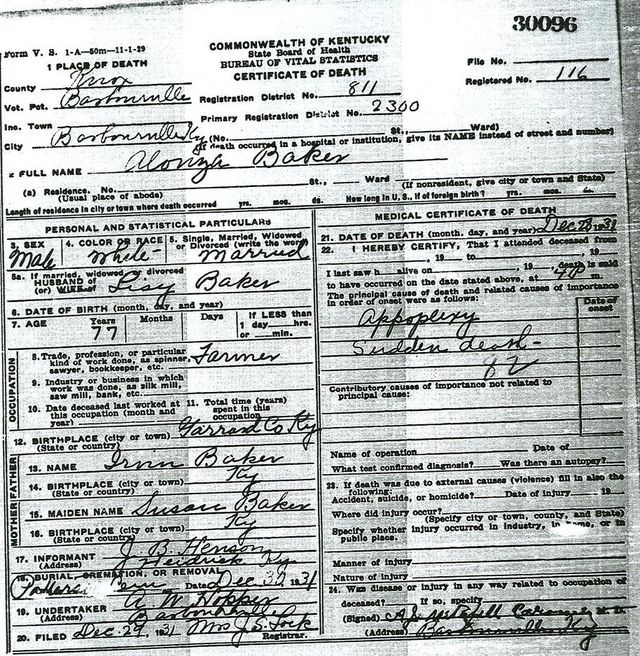 30096
Form V. S. 1-A—50m—11-1-29
COMMONWEALTH OF KENTUCKY
State Board of Health
BUREAU OF VITAL STATISTICS
CERTIFICATE OF DEATH
1 PLACE OF DEATH
County Knox
Vot. Pct. Barbourville
Inc. Town
City Barbourville Ky (No. St., Ward)
File No.
Registered No. 116
Registration District No. 811
Primary Registration District No. 2300
(If death occurred in a hospital or institution, give its NAME instead of street and number)
2 FULL NAME Alonza Baker
(a) Residence. No. St., Ward (If nonresident, give city or town and State)
(Usual place of abode)
Length of residence in city or town where death occurred yrs. mos. ds. How long in U. S., if of foreign birth? yrs. mos. ds.
PERSONAL AND STATISTICAL PARTICULARS
3. SEX Male
4. COLOR OR RACE White
5. Single, Married, Widowed or Divorced (write the word) Married
5a. If married, widowed or divorced
HUSBAND of
(or) WIFE of Baker
6. DATE OF BIRTH (month, day, and year)
7. AGE Years 77 Months Days If LESS than 1 day hrs. or min.
OCCUPATION
8. Trade, profession, or particular kind of work done, as spinner, sawyer, bookkeeper, etc. Farmer
9. Industry or business in which work was done, as silk mill, saw mill, bank, etc.
10. Date deceased last worked at this occupation (month and year)
11. Total time (years) spent in this occupation
12. BIRTHPLACE (city or town) (State or country) Garrard Co Ky
FATHER
13. NAME Baker
14. BIRTHPLACE (city or town) (State or country) Ky
MOTHER
15. MAIDEN NAME Susan Baker
16. BIRTHPLACE (city or town) (State or country) Ky
17. INFORMANT J. B. Henson
(Address) Ky
18. BURIAL, CREMATION, OR REMOVAL
Date Dec 31
19. UNDERTAKER A W Hopper
(Address) Barbourville
20. FILED Dec 29, 1931 Mrs J. S. Lock
Registrar.
MEDICAL CERTIFICATE OF DEATH
21. DATE OF DEATH (month, day, and year) Dec 28 1931
22. I HEREBY CERTIFY, That I attended deceased from
, 19 to , 19
I last saw h alive on , 19 death is said
to have occurred on the date stated above, at 4 P m.
The principal cause of death and related causes of importance in order of onset were as follows:
Date of onset
Appoplexy
Sudden death-
82
Contributory causes of importance not related to principal cause:
Name of operation Date of
What test confirmed diagnosis? Was there an autopsy?
23. If death was due to external causes (violence) fill in also the following:
Accident, suicide, or homicide? Date of injury 19
Where did injury occur?
(Specify city or town, county, and State)
Specify whether injury occurred in industry, in home, or in public place.
Manner of injury
Nature of injury
24. Was disease or injury in any way related to occupation of deceased? If so, specify
(Signed) Mitchell Coroner M. D.
(Address) Barbourville Ky